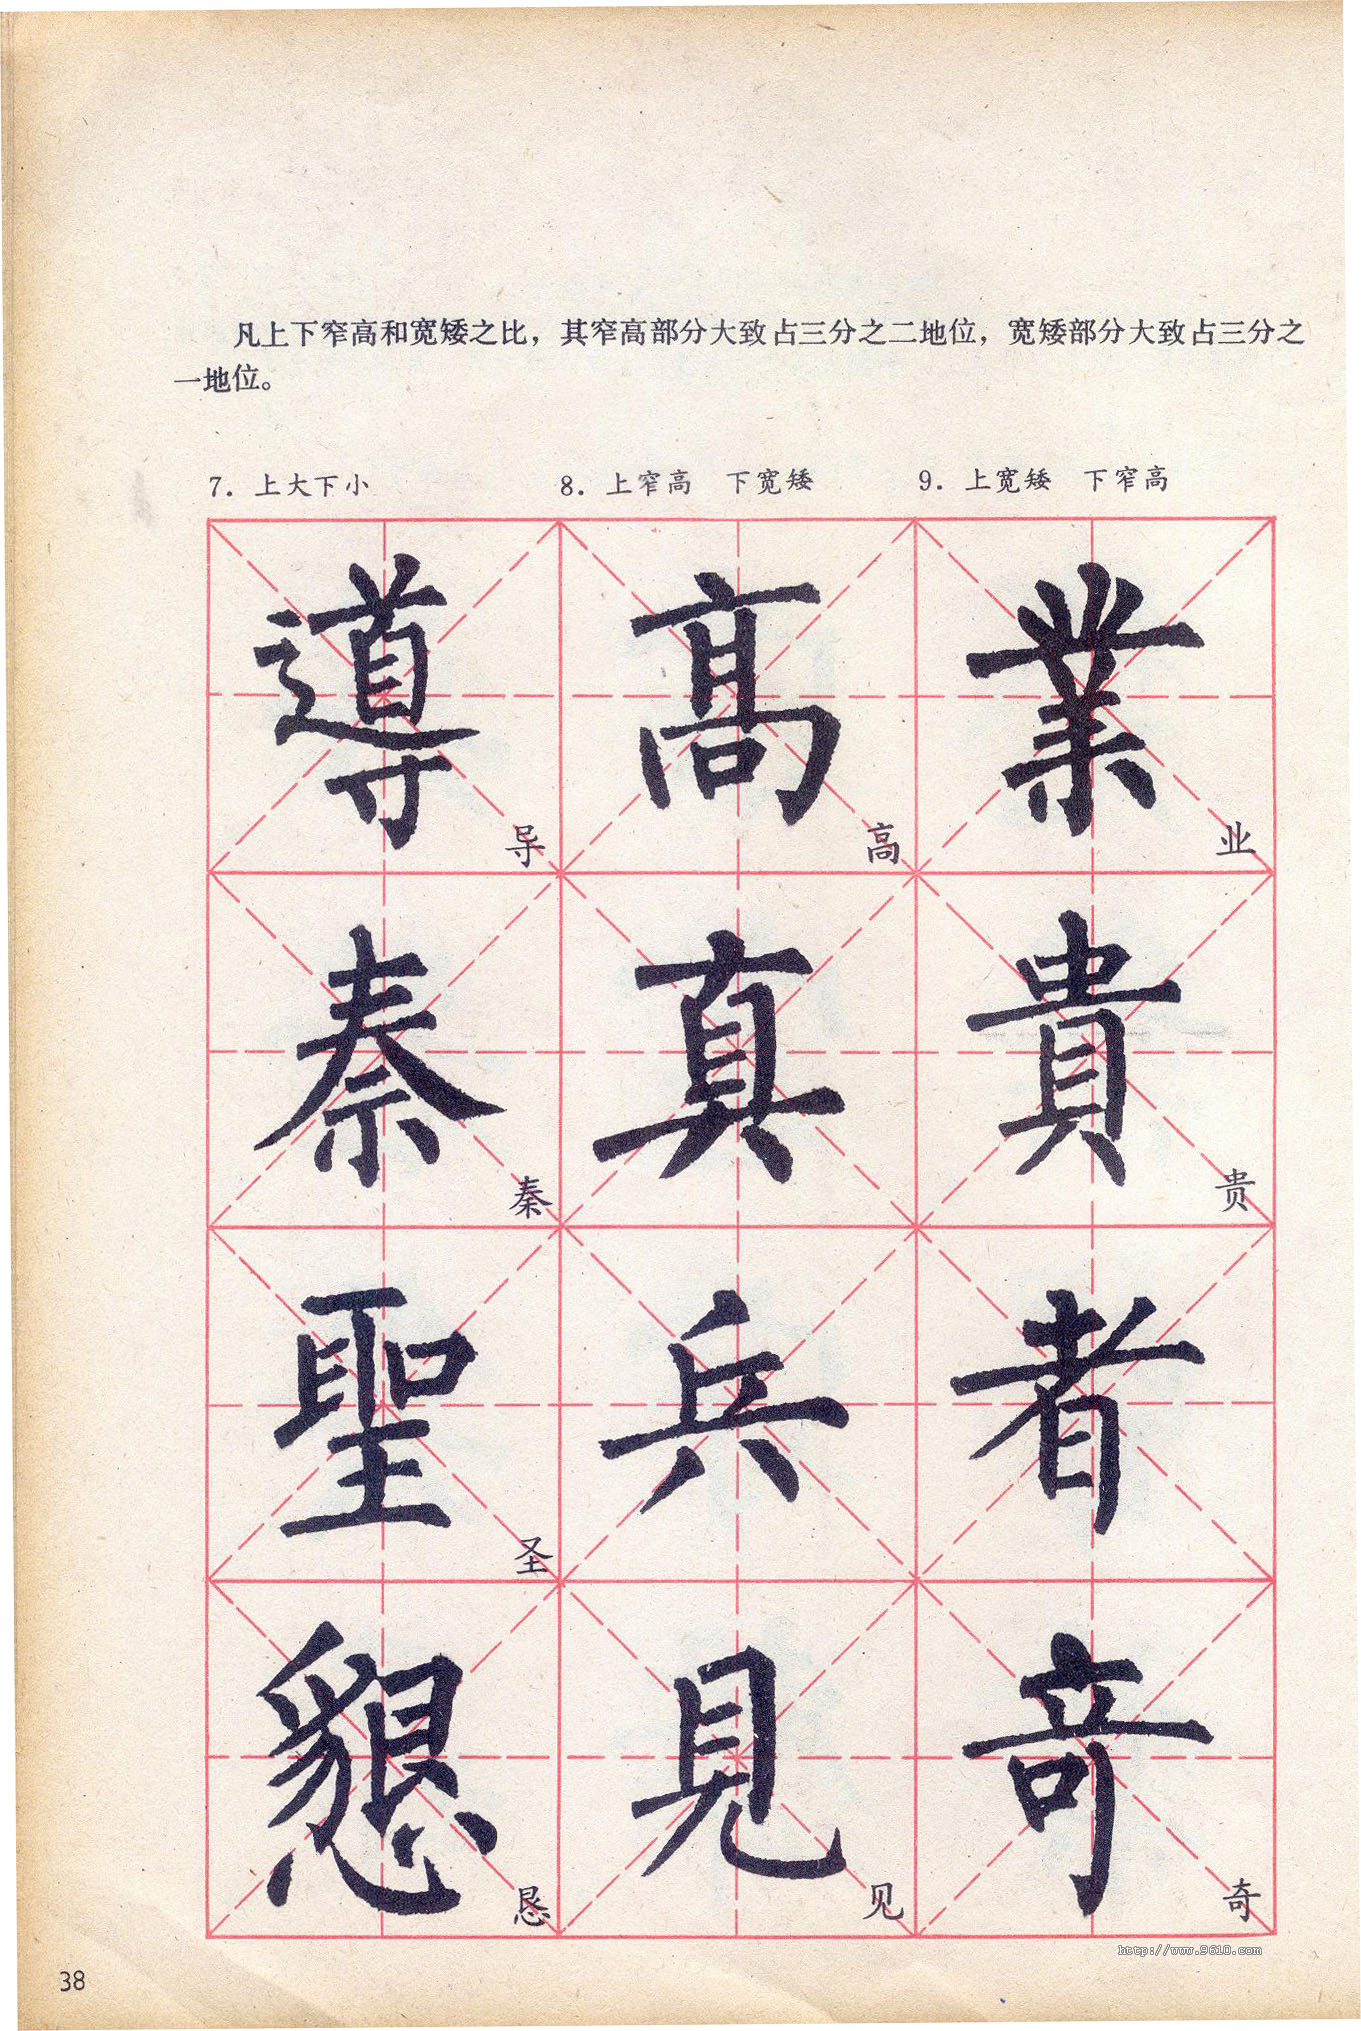 凡上下窄高和宽矮之比，其窄高部分大致占三分之二地位，宽矮部分大致占三分之
一地位。
7. 上大下小
8. 上窄高 下宽矮
9. 上宽矮 下窄高
導 导
高 高
業 业
秦 秦
真
貴 贵
聖 圣
兵
者
懇 恳
見 见
奇 奇
http://www.9610.com
38